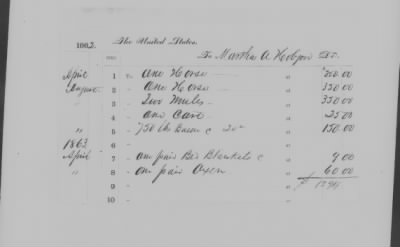 1863. The United States,
To Martha A. Hobson Dr.
April 1 One Horse " 200.00
August 2 One Horse " 350.00
3 Two Mules " 350.00
4 One Cart " 25.00
" 5 750 lbs Bacon c 20¢ " 150.00
1863 6 "
April 7 One pair Bed Blankets c " 9.00
" 8 One pair Oxen " 60.00
9 "
10 "